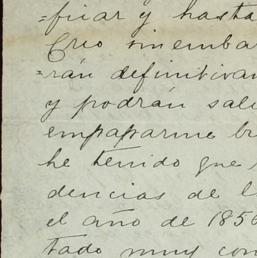 =ficar y hasta
Creo sin embar
=rán definitivam
y podrán sale
empaparme b
he tenido que
dencias de l
el año de 1856
tado muy con